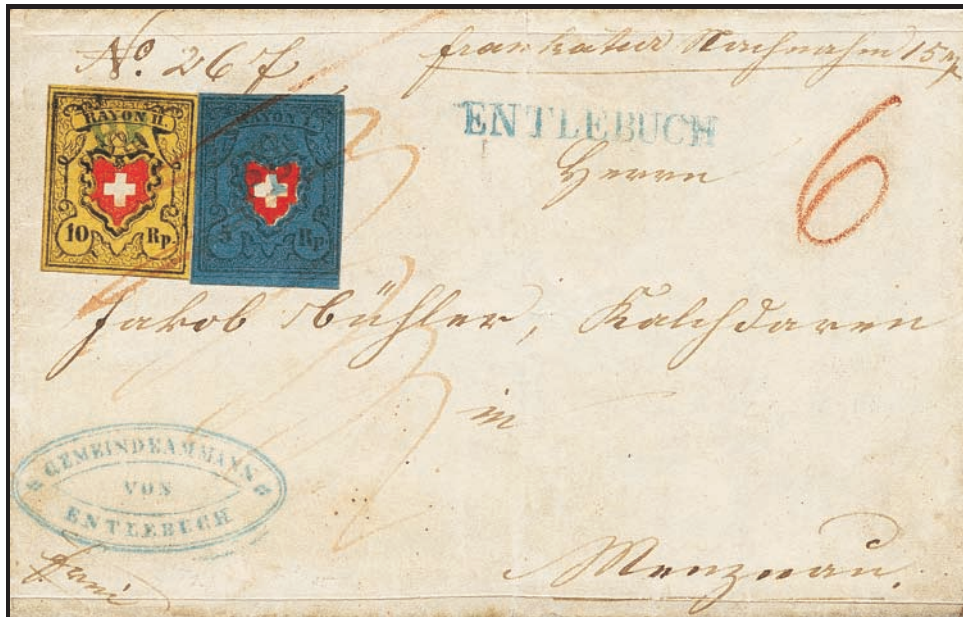 No. 267
frankatur Nachnahm 15 rp
RAYON II.
10 Rp.
RAYON I.
5 Rp.
ENTLEBUCH
6
Herrn
Jakob Bühler,
in
Menznau.
GEMEINDEAMMANN
VON
ENTLEBUCH
frei